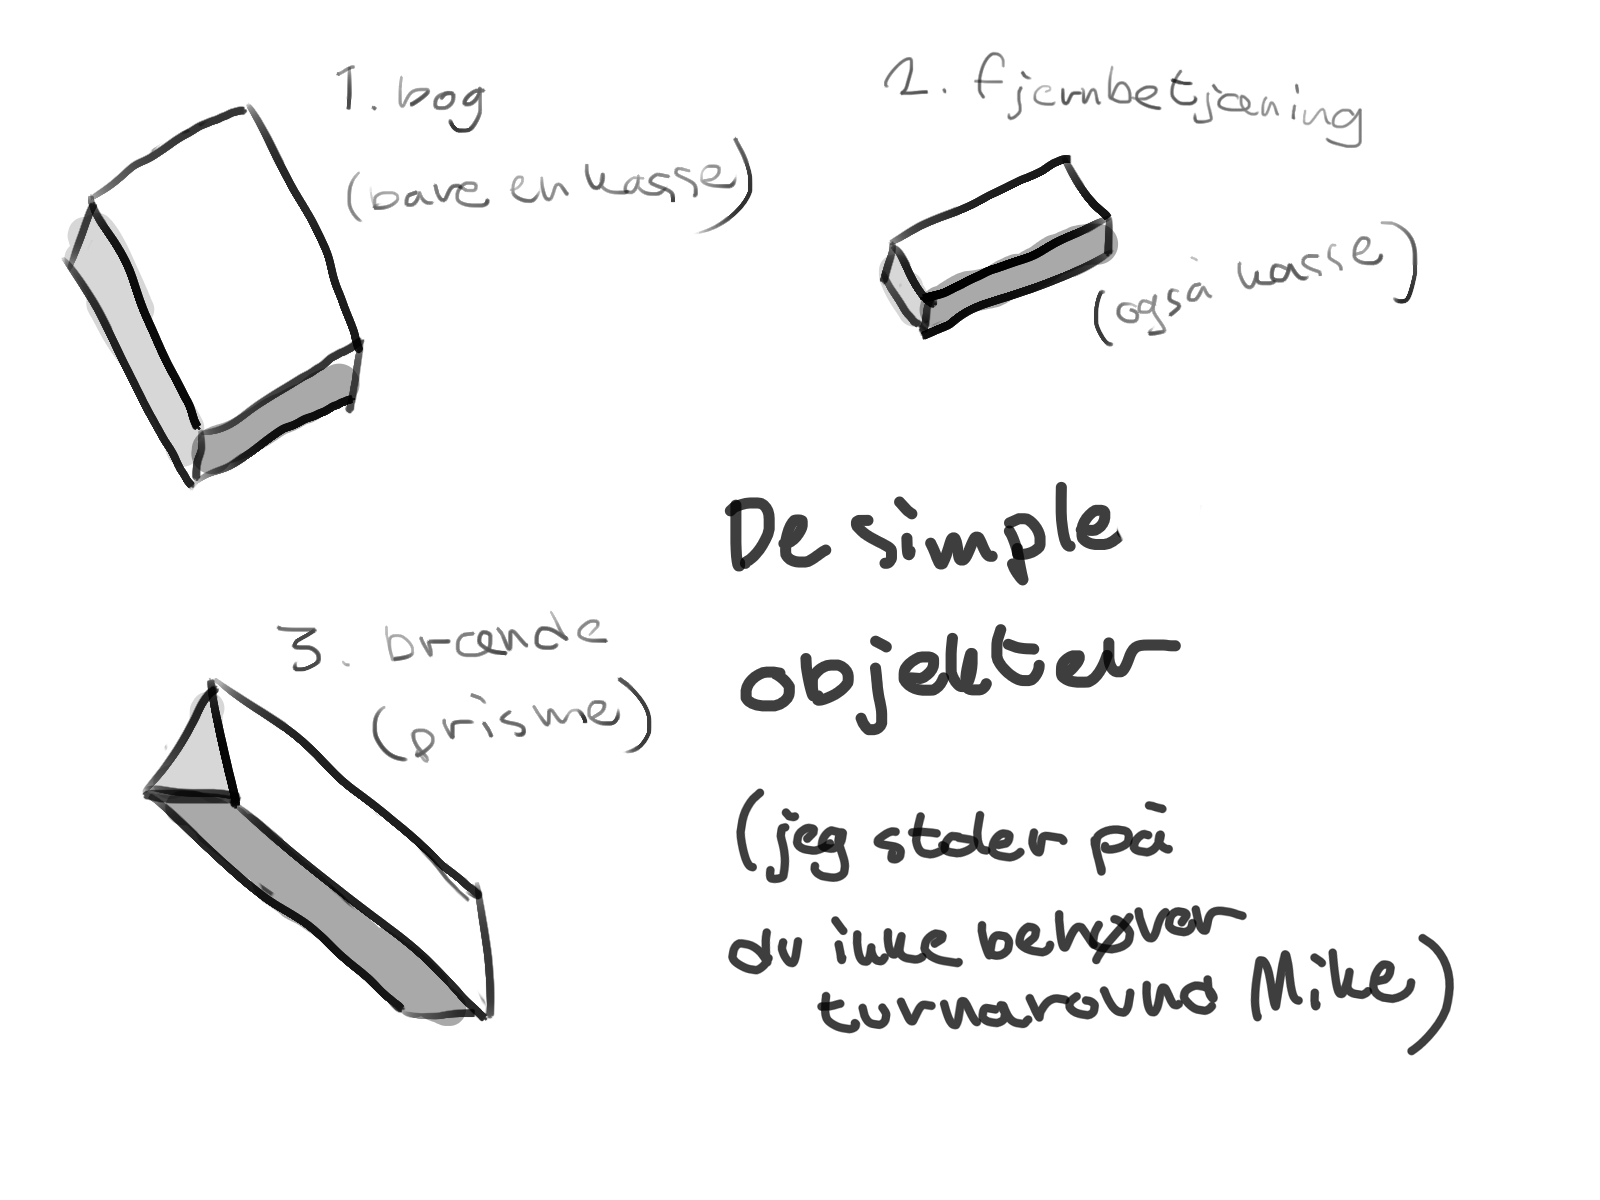 1. bog
(bare en kasse)
2. fjernbetjæning
(også kasse)
3. brænde
(prisme)
De simple
objekter
(jeg stoler på
du ikke behøver
turnaround Mike)